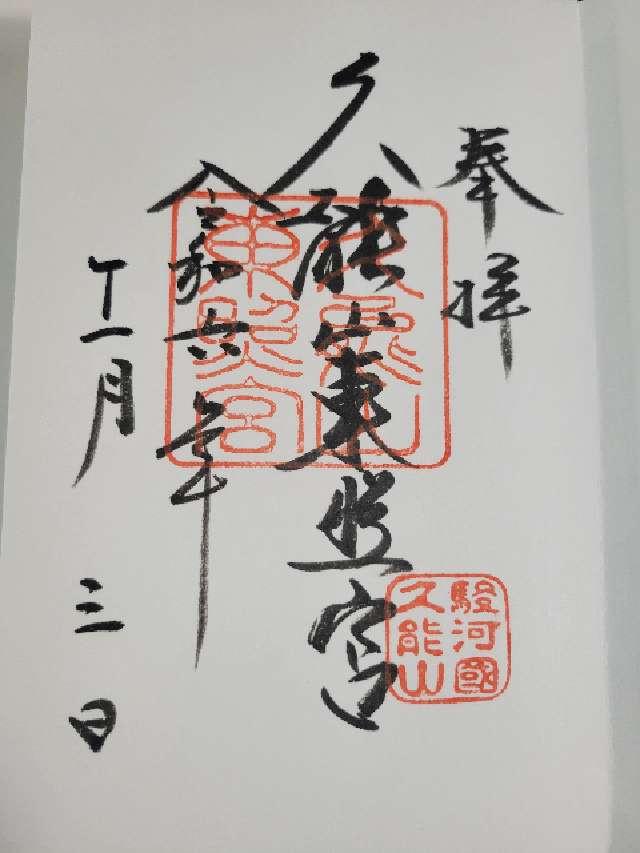 奉拝
久能山東照宮
令和六年
十一月三日
久能山
東照宮
駿河國
久能山